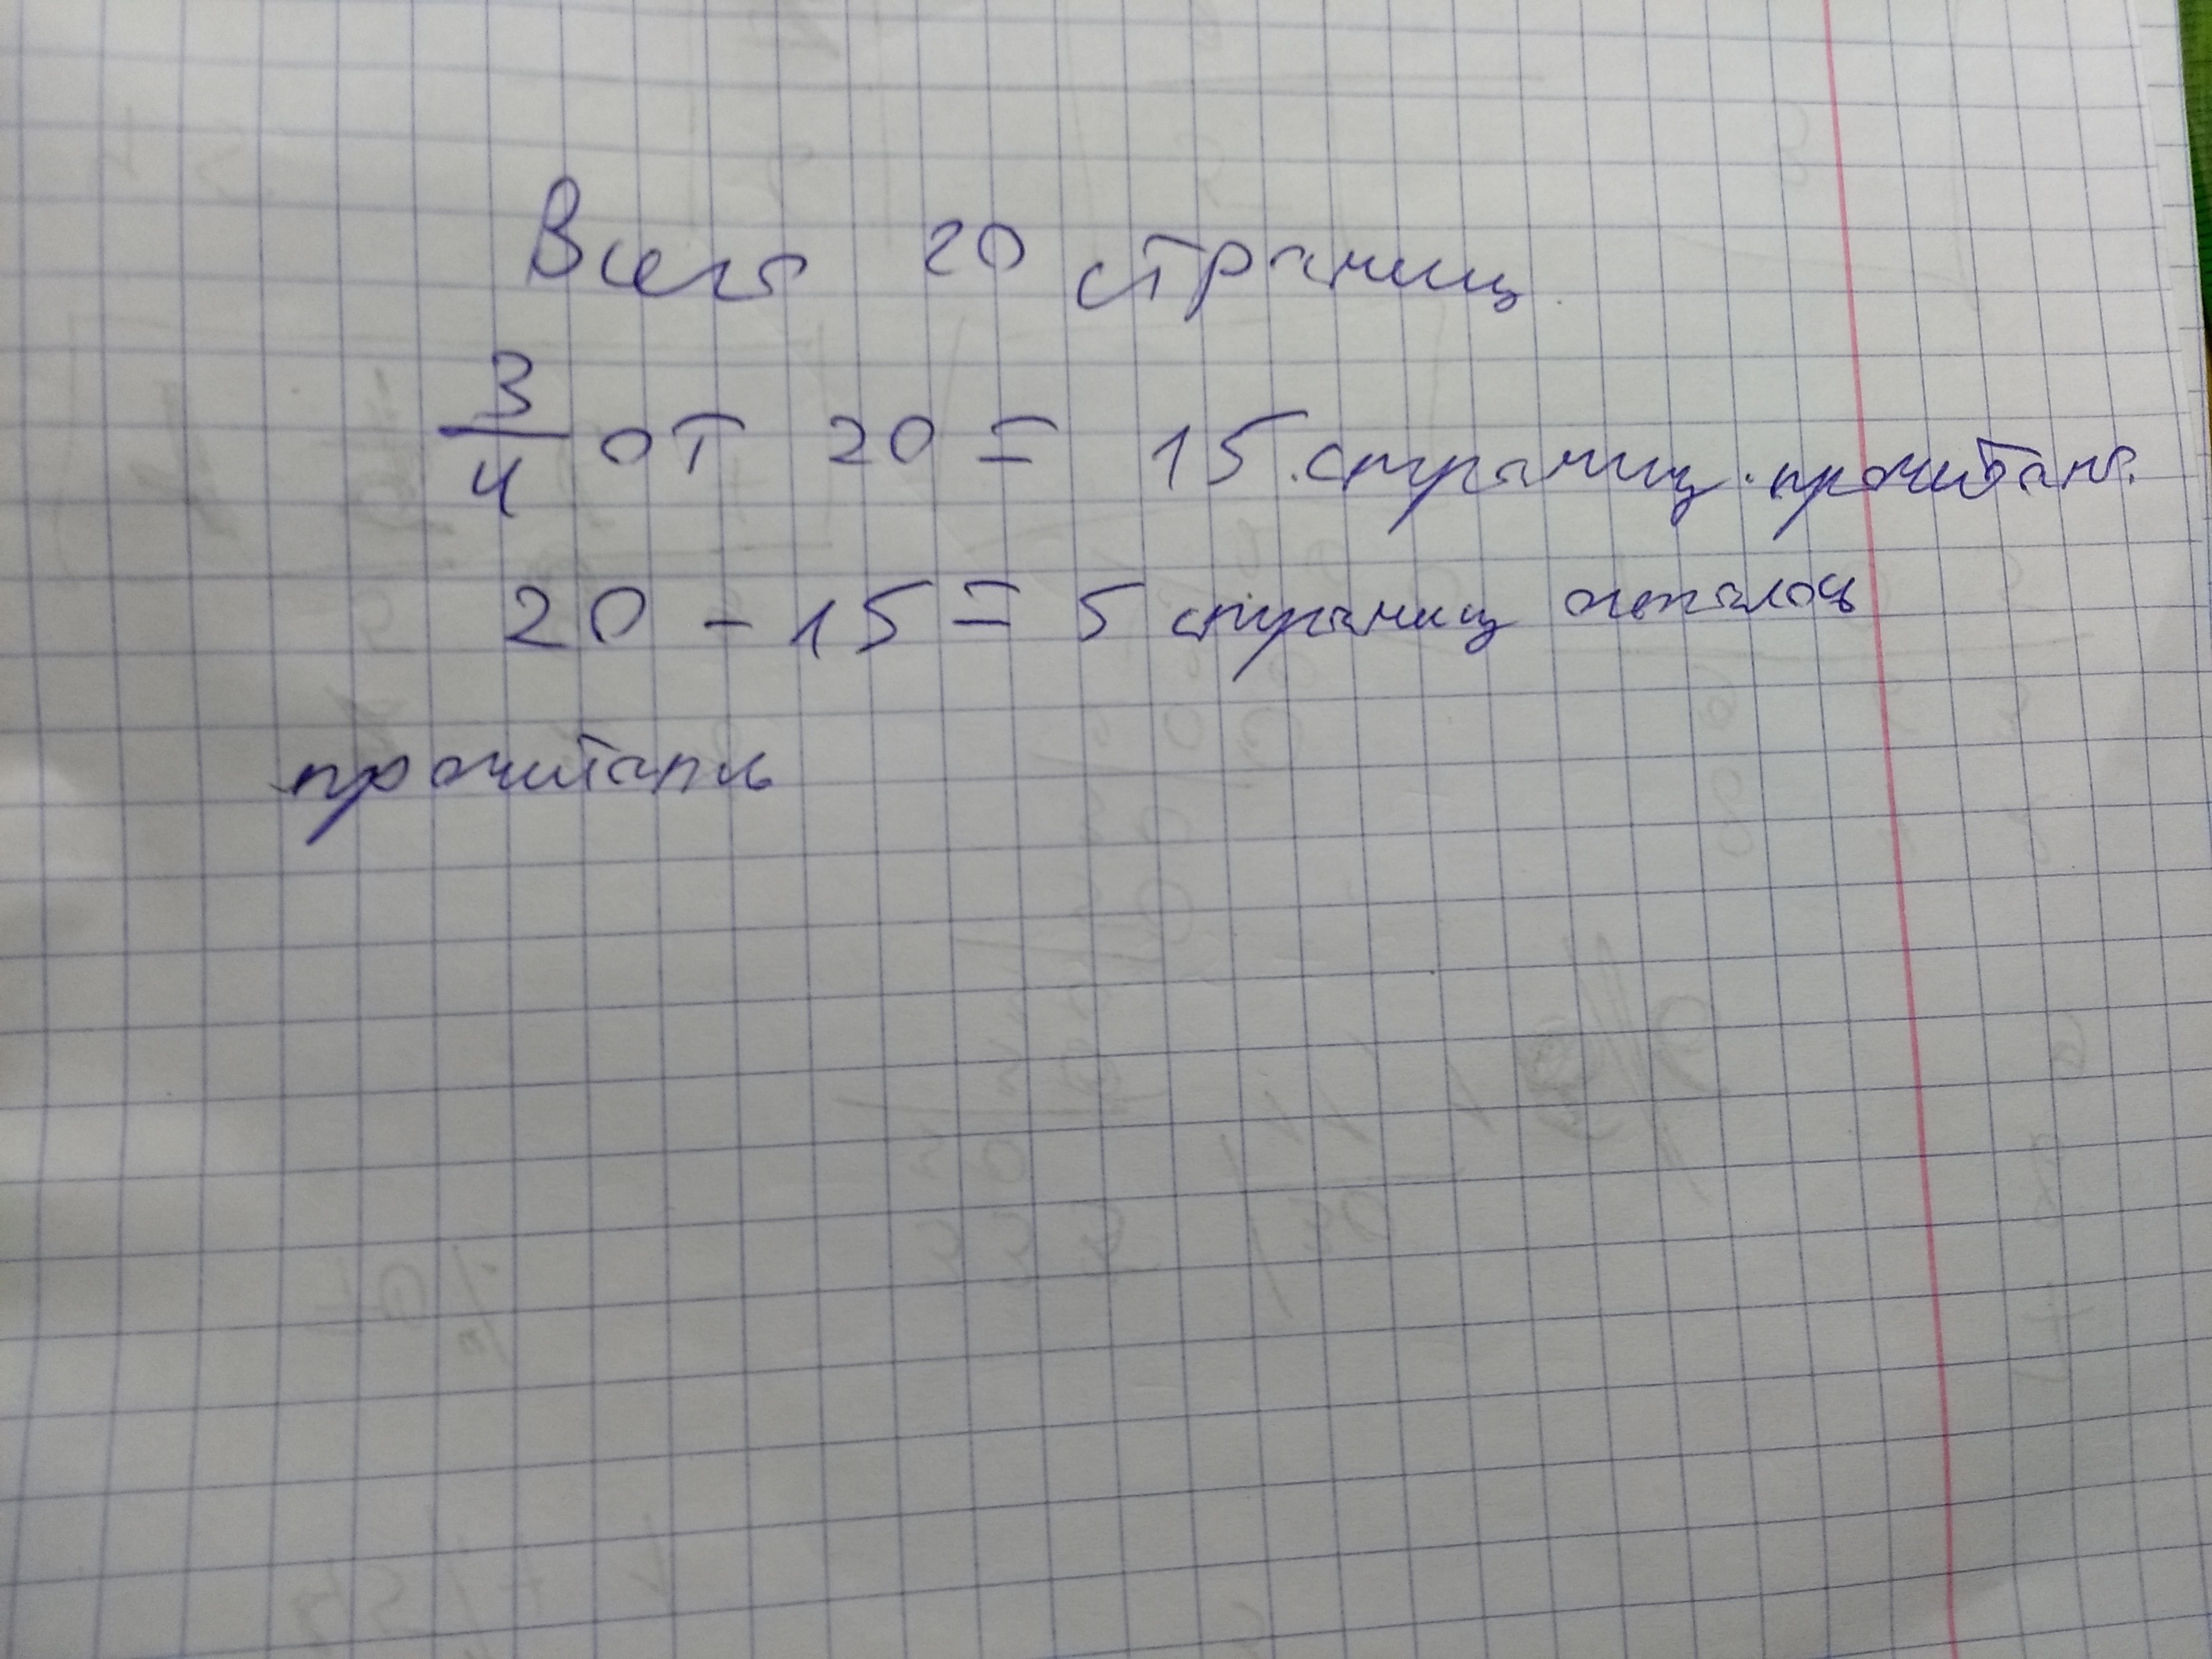 Всего 20 страниц
3/4 от 20 = 15 страниц прочитано.
20 - 15 = 5 страниц осталось
прочитать